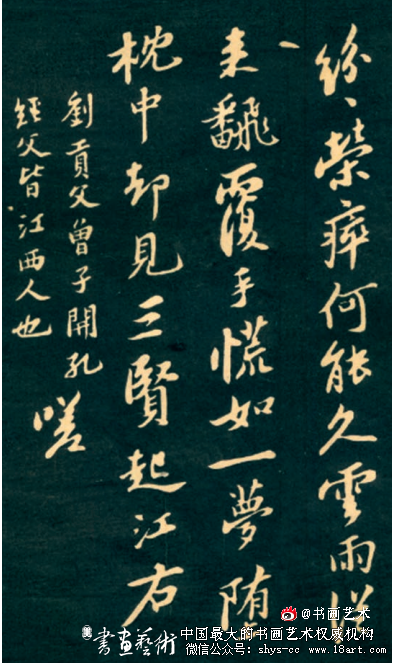 紛〻榮瘁何能久雲雨從
来飜覆手慌如一夢堕
枕中却見三賢起江右
劉貢父曾子開孔
經父皆江西人也
嗟
@书画艺术
書畫藝術 中国最大的书画艺术权威机构
微信公众号: shys-cc www.18art.com